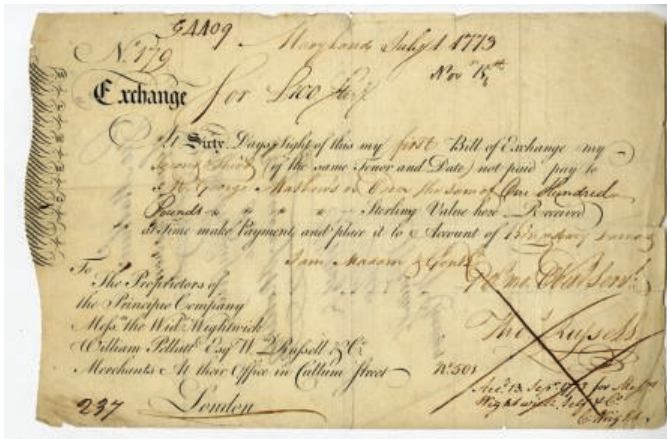 54409
Maryland July 1 1773
No. 179
Novr 15th
Exchange for
At Sixty Days Sight of this my first Bill of Exchange my
Second & Third (of the same Tenor and Date) not paid pay to
George Mathews or Order the Sum of One Hundred
Pounds Sterling Value here Received
at Time make Payment and place it to Account of
I am Madam & Gentn
Yor mo. Obt Servt
To
The Proprietors of
the Principio Company
Messrs the Wid Wightwick
William Pellatt Esqr W. Russell & Co.
Merchants At their Office in Cullum Street
London
Thos Russell
No 501
Accd 13 Sepr 1773 for
Wightwick Self & Co.
237